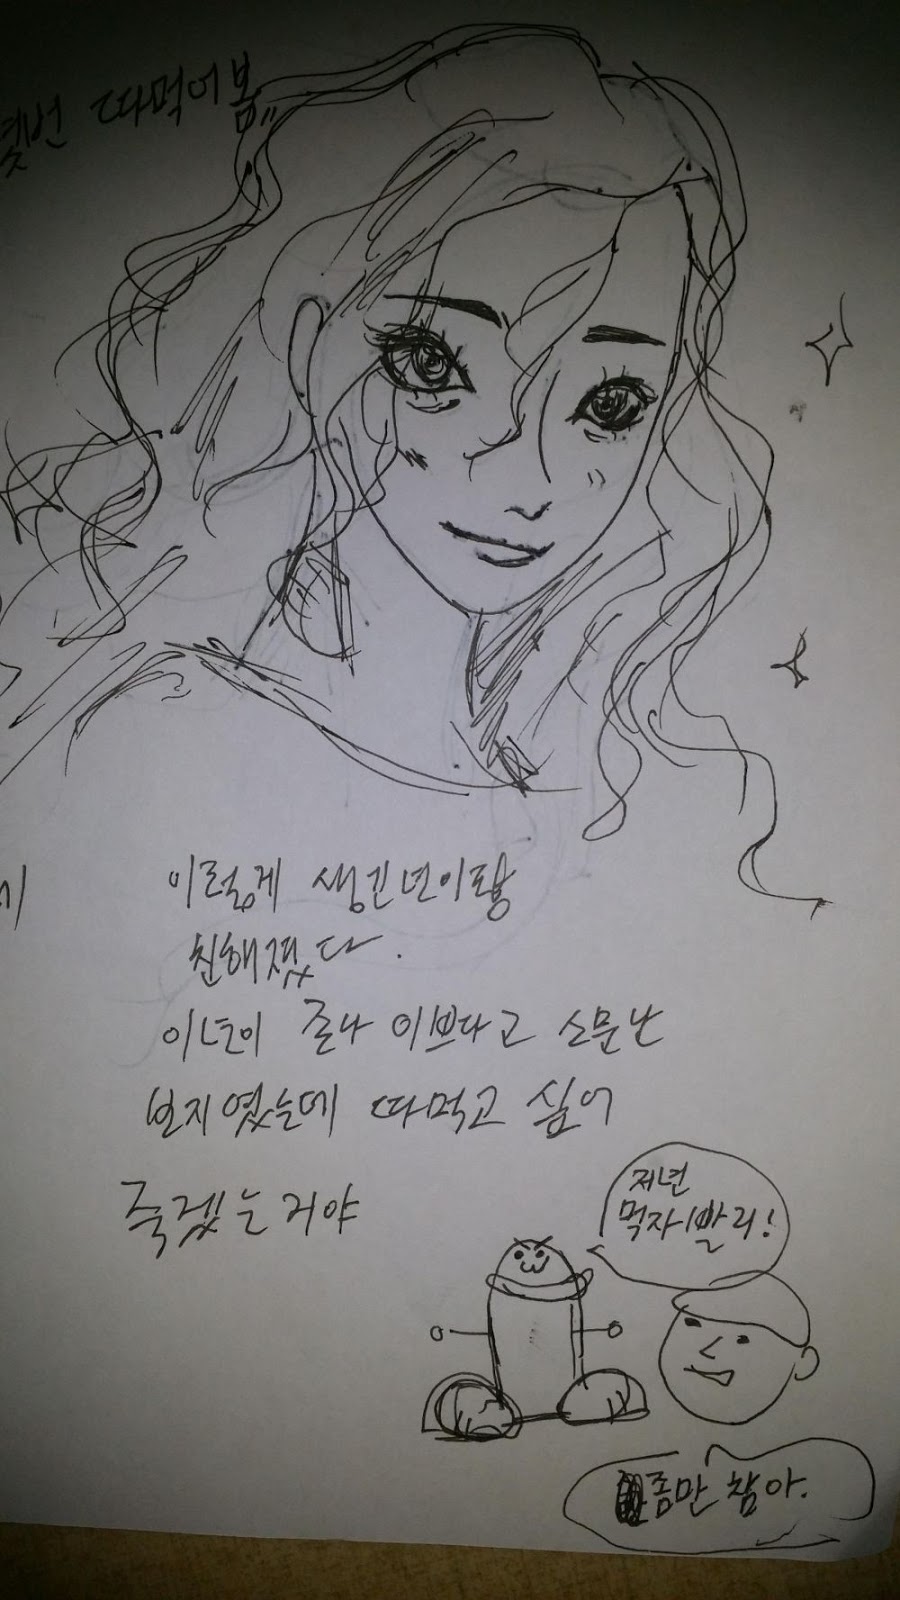 몇번 따먹어봄
게
이렇게 생긴년이랑
친해졌다.
이년이 존나 이쁘다고 소문난
보지였는데 따먹고 싶어
죽겠는거야
저년
먹자 빨리!
좀만 참아.